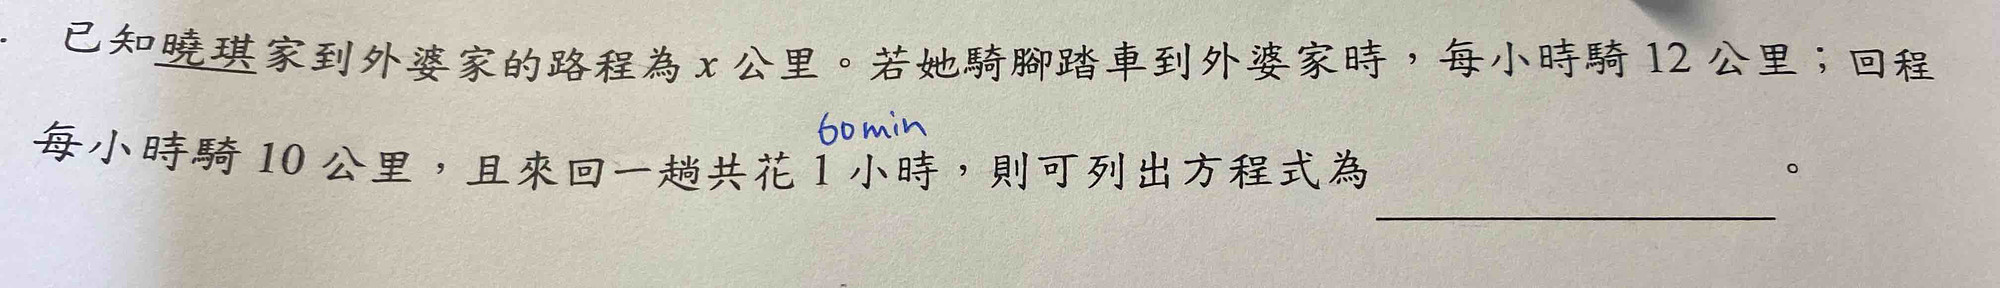 . 已知曉琪家到外婆家的路程為 x 公里。若她騎腳踏車到外婆家時，每小時騎 12 公里；回程
60min
每小時騎 10 公里，且來回一趟共花 1 小時，則可列出方程式為＿＿＿＿＿＿。